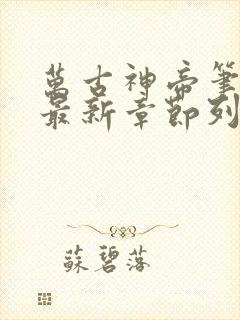 萬古神帝筆
最新章節列
蘇碧落